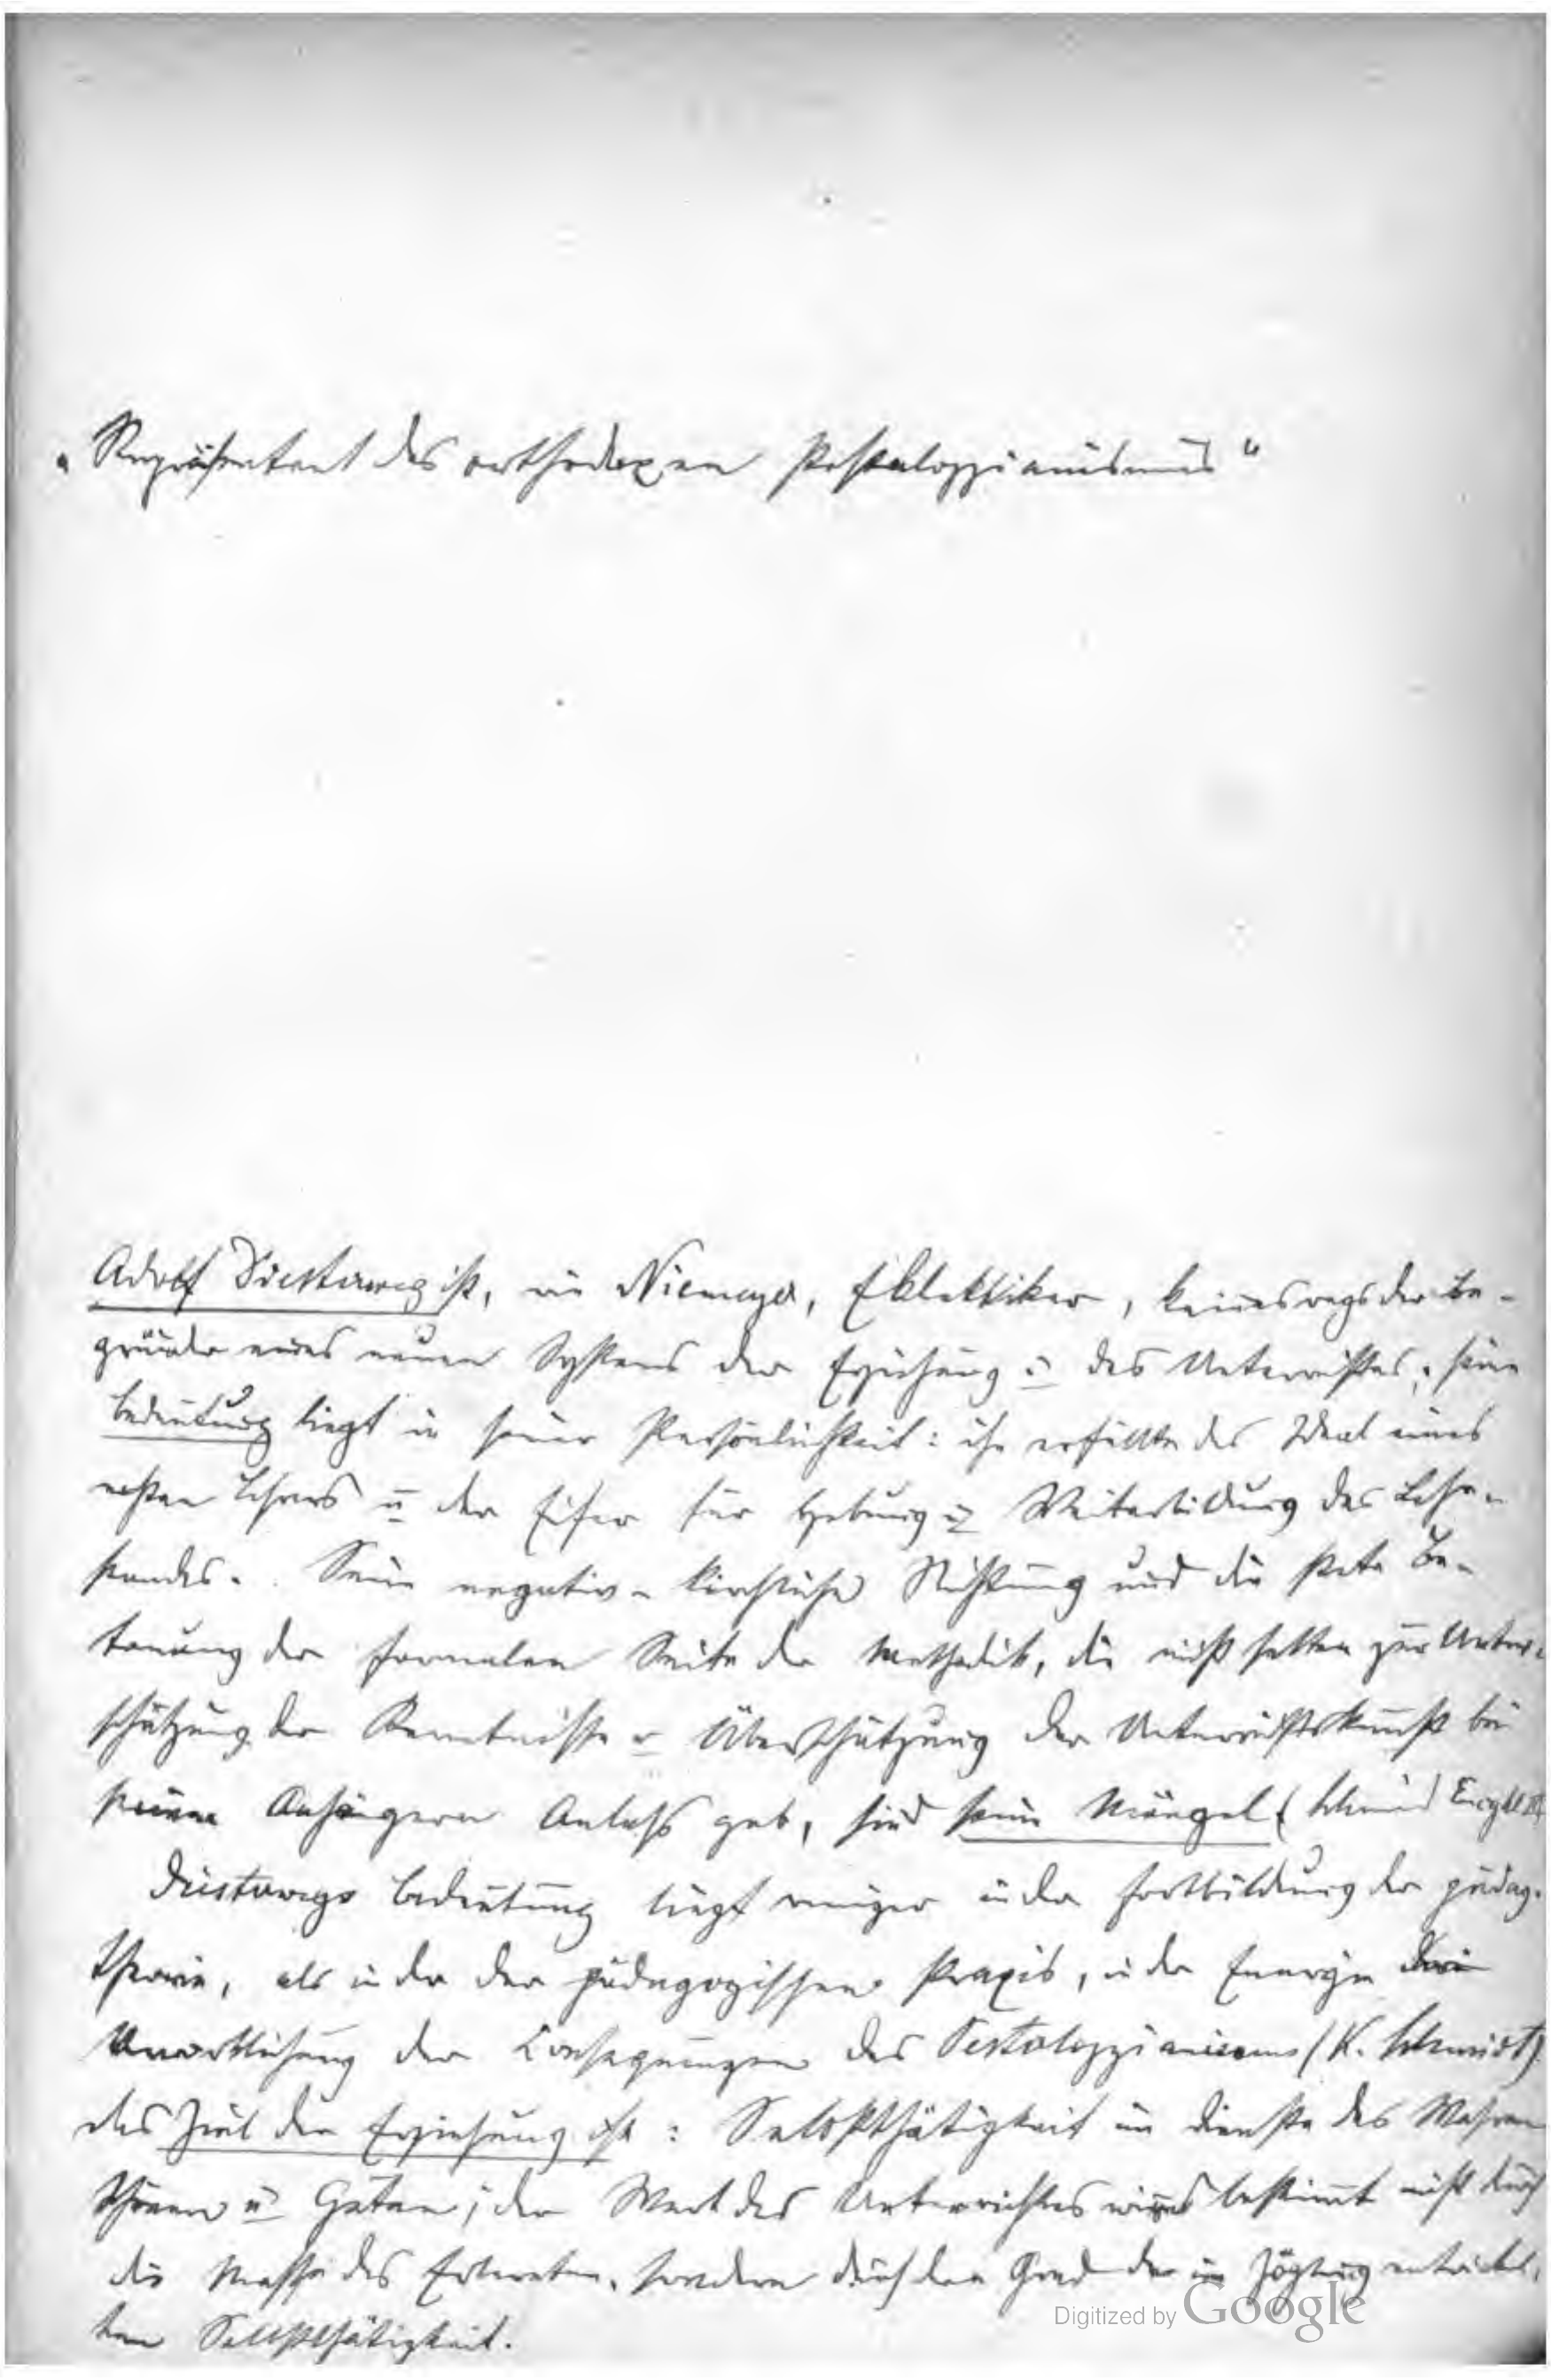 „Repräsentant des orthodoxen Pestalozzianismus“
Adolf Diesterweg ist, wie Niemeyer, Eklektiker, keineswegs der Be-
gründer eines neuen Systems der Erziehung u. des Unterrichtes, seine
Bedeutung liegt in seiner Persönlichkeit: ihn erfüllte das Ideal eines
rechten Lehrers u der Eifer für Hebung u Weiterbildung des Lehr-
standes. Seine negativ-kirchliche Richtung und die stete Be-
tonung der formalen Seite der Methodik, die nicht selten zur Unter-
schätzung der Kenntnisse u Überschätzung der Unterrichtskunst bei
seinen Anhängern Anlaß gab, sind seine Mängel (Schmid Encykl
Diesterwegs Bedeutung liegt weniger in der Fortbildung der pädag.
Theorie, als in der der pädagogischen Praxis, in der Energie der
Verwirklichung der Consequenzen des Pestalozzianismus (K. Schmidt)
das Ziel der Erziehung ist: Selbstthätigkeit im Dienste des Wahren
Schönen u Guten; der Wert des Unterrichtes wird bestimt nicht durch
die Masse des Erlernten, sondern durch den Grad der im Zögling entwickel-
ten Selbstthätigkeit.
Digitized by Google